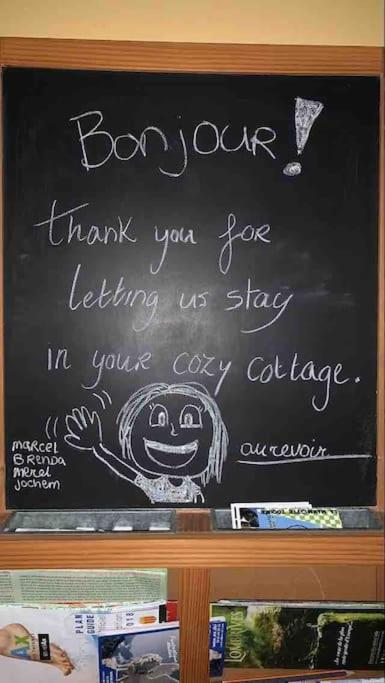 Bonjour!
thank you for
letting us stay
in your cozy cottage.
au revoir
marcel
Brenda
merel
jochem
PLAN
GUIDE
018
AX